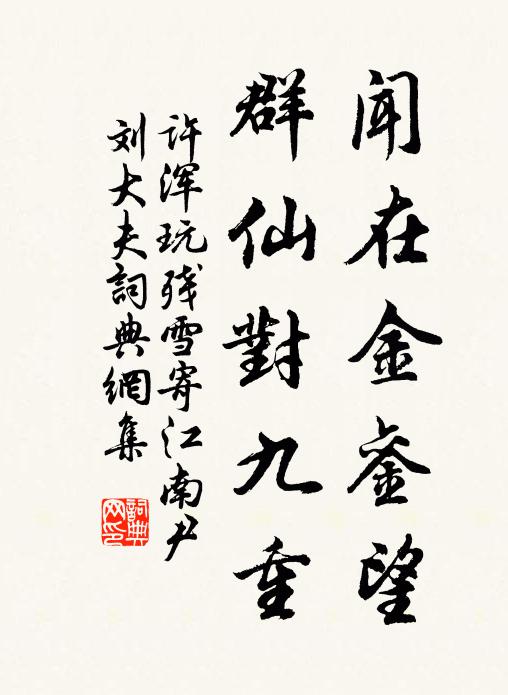 闻在金銮望
群仙對九重
许浑玩残雪寄江南尹
刘大夫詞典網集
詞典网印